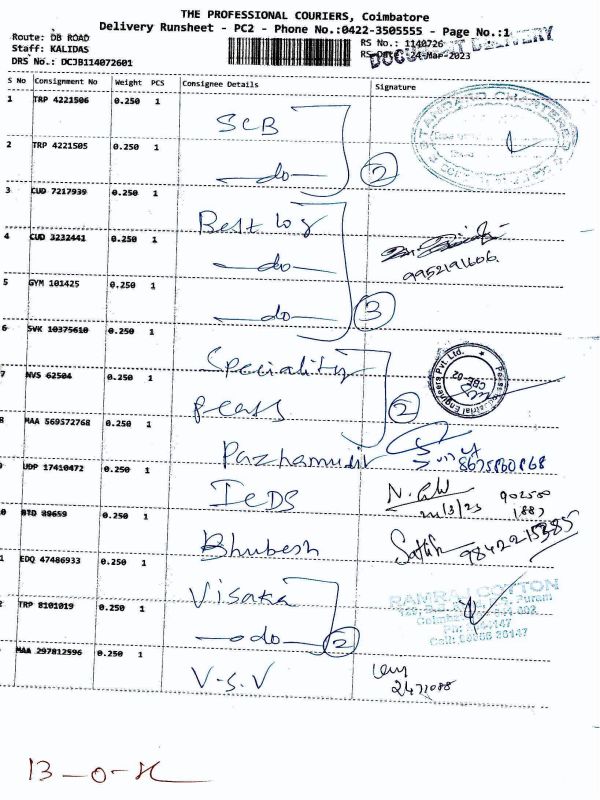 THE PROFESSIONAL COURIERS, Coimbatore
Delivery Runsheet - PC2 - Phone No.:0422-3505555 - Page No.:1
Route: DB ROAD
RS No.: 1140726
DOCUMENT DELIVERY
Staff: KALIDAS
RS Date: 24-Mar-2023
DRS No.: DCJB114072601
S No Consignment No Weight PCS Consignee Details Signature
1 TRP 4221506 0.250 1 SCB
2 TRP 4221505 0.250 1 do 2
3 CUD 7217939 0.250 1 Best log
4 CUD 3232441 0.250 1 do 9952191606
5 GYM 101425 0.250 1 do 3
6 SVK 10375610 0.250 1 Speciality
7 NVS 62504 0.250 1 2
8 MAA 569572768 0.250 1 Pazhamudir
9 UDP 17410472 0.250 1 IeDS 24/3/23
0 BTD 89659 0.250 1 Bhubesh 9842215385
1 EDQ 47486933 0.250 1 Visaka
RAMRAJ COTTON
2 TRP 8101019 0.250 1 do 2
MAA 297812596 0.250 1 V-S-V